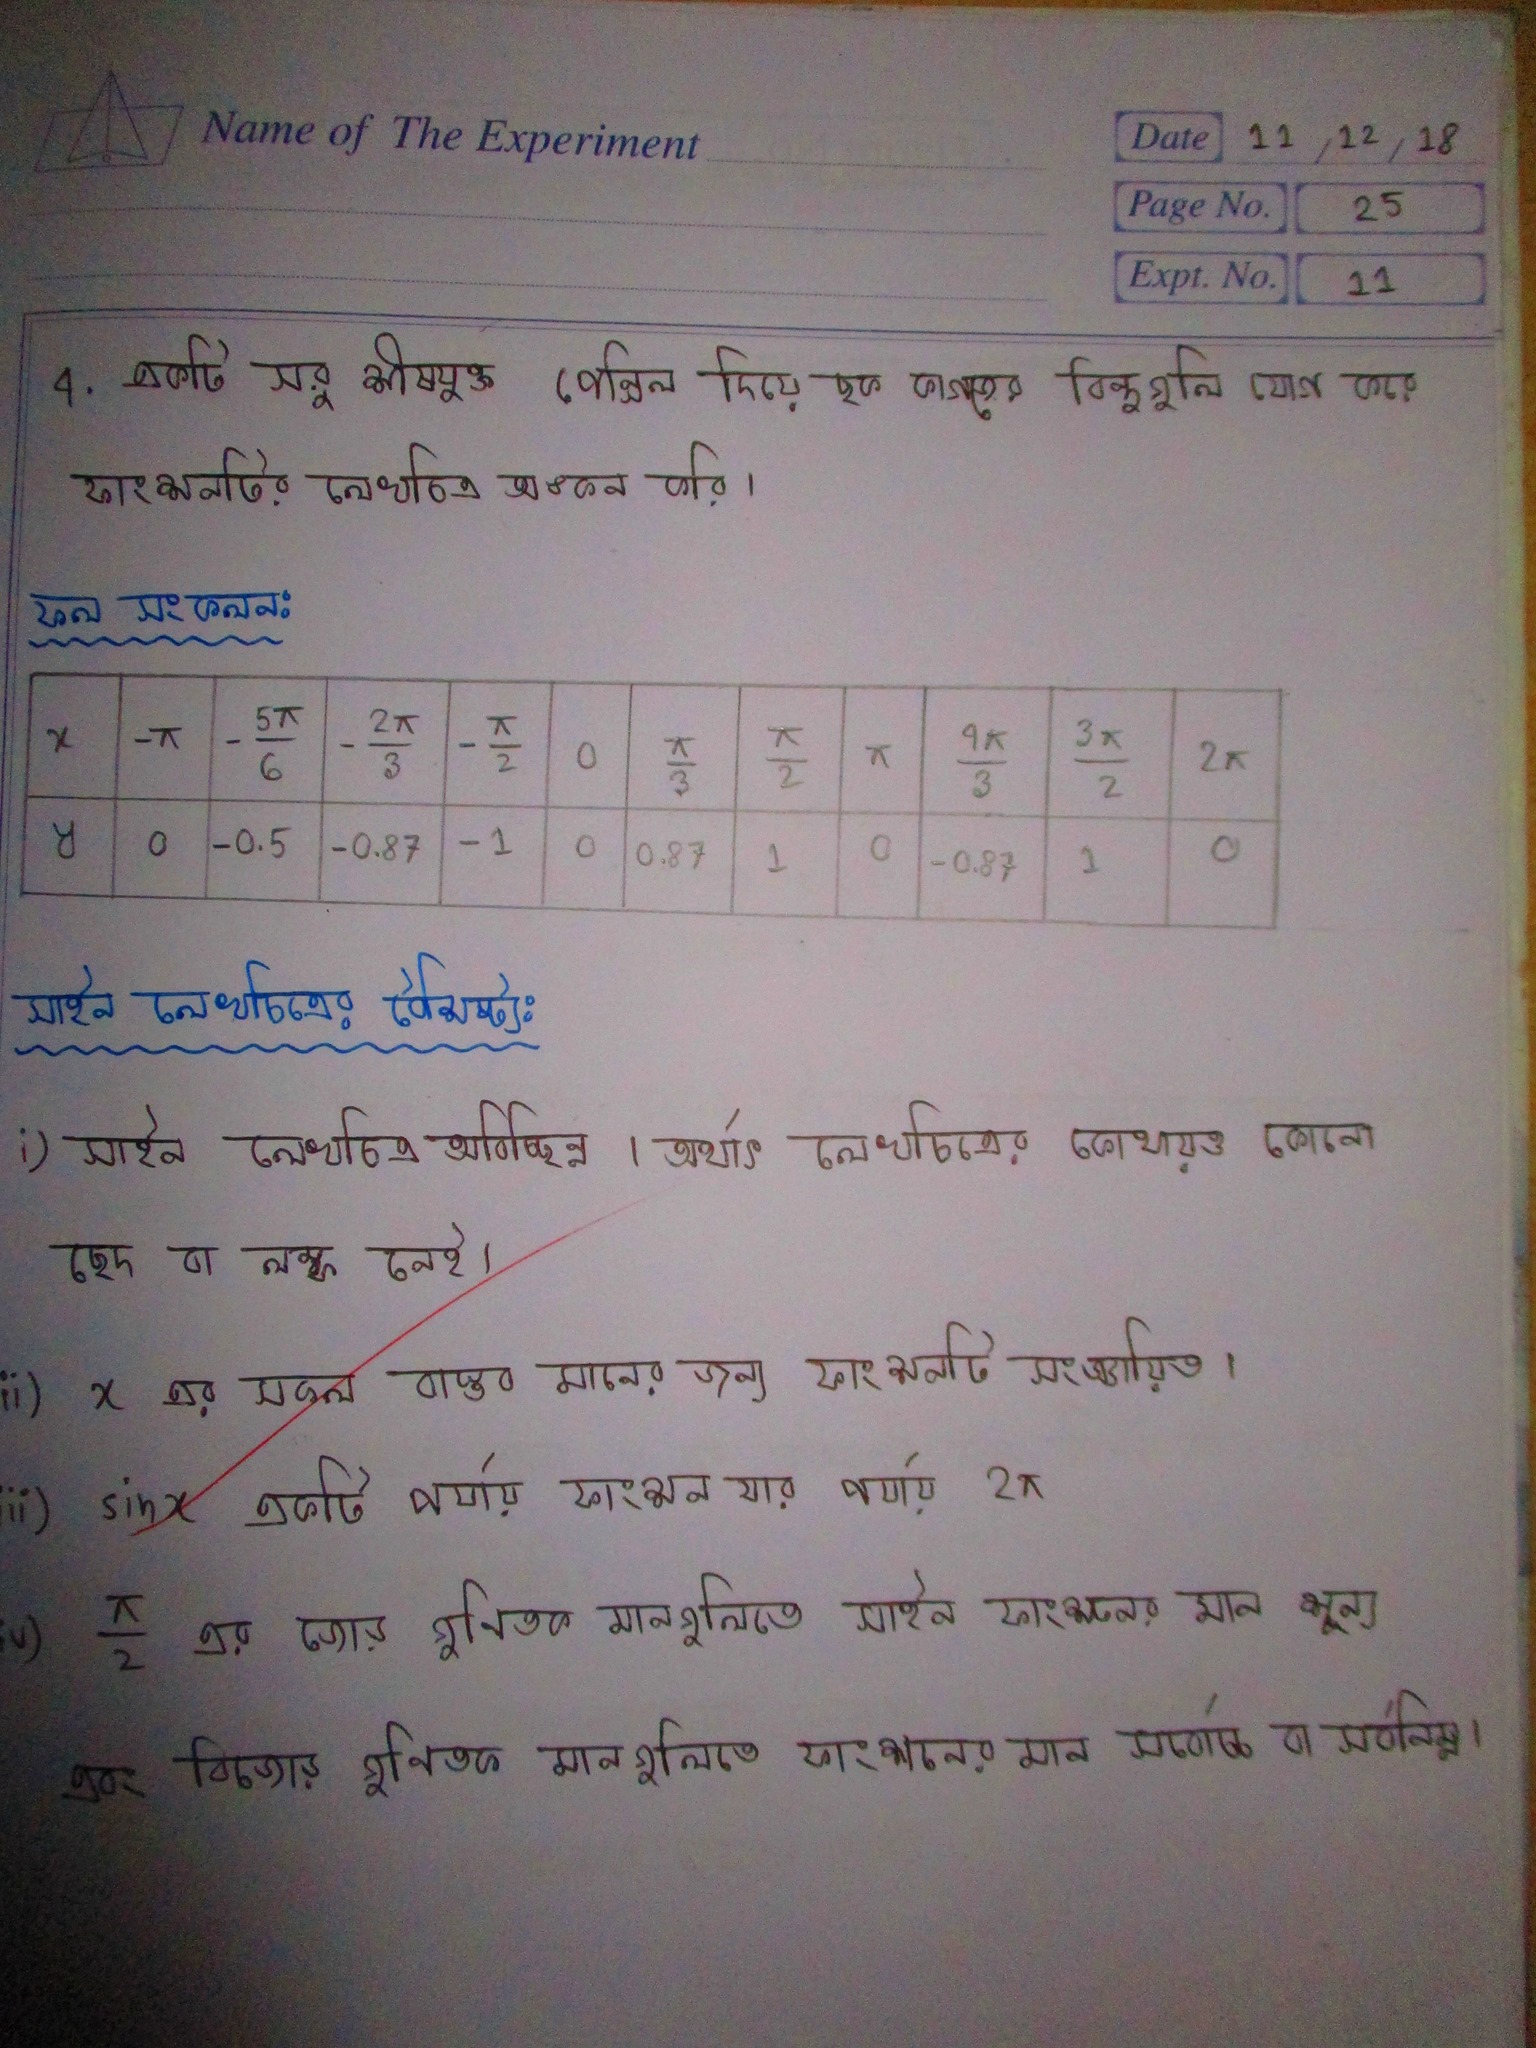 Name of The Experiment
Date 11 , 12 , 18
Page No. 25
Expt. No. 11
4. একটি সরু শীষযুক্ত পেন্সিল দিয়ে ছক কাগজের বিন্দুগুলি যোগ করে
ফাংশনটির লেখচিত্র অঙ্কন করি।
ফল সংকলনঃ
x -π -5π/6 -2π/3 -π/2 0 π/3 π/2 π 4π/3 3π/2 2π
y 0 -0.5 -0.87 -1 0 0.87 1 0 -0.87 1 0
সাইন লেখচিত্রের বৈশিষ্ট্যঃ
i) সাইন লেখচিত্র অবিচ্ছিন্ন । অর্থাৎ লেখচিত্রের কোথায়ও কোনো
ছেদ বা লম্ফ নেই।
ii) x এর সকল বাস্তব মানের জন্য ফাংশনটি সংজ্ঞায়িত।
iii) sinx একটি পর্যায় ফাংশন যার পর্যায় 2π
iv) π/2 এর জোড় গুণিতক মানগুলিতে সাইন ফাংশনের মান শূন্য
এবং বিজোড় গুণিতক মানগুলিতে ফাংশনের মান সর্বোচ্চ বা সর্বনিম্ন।